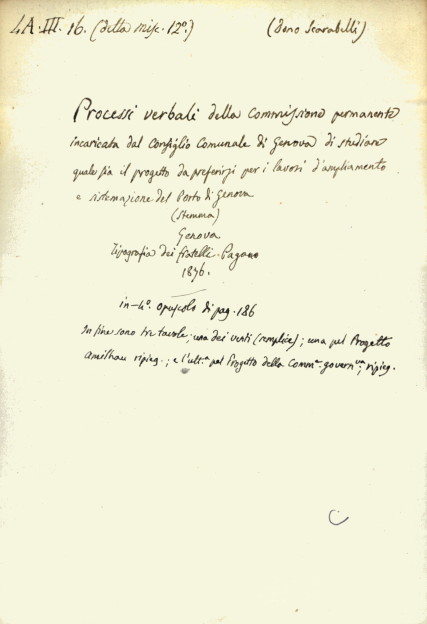 4A·III·16. (della misc. 12º.) (dono Scarabelli).
Processi verbali della Commissione permanente
incaricata dal Consiglio Comunale di Genova di studiare
quale sia il progetto da preferirsi per i lavori d'ampliamento
e sistemazione del Porto di Genova
(Stemma)
Genova
Tipografia dei fratelli Pagano
1876.
in-4º. opuscolo di pag. 186
In fine sono tre tavole; una dei venti (semplice); una pel Progetto
Amilhau ripieg.; e l'ult.ª pel Progetto della Comm.e govern.va; ripieg.